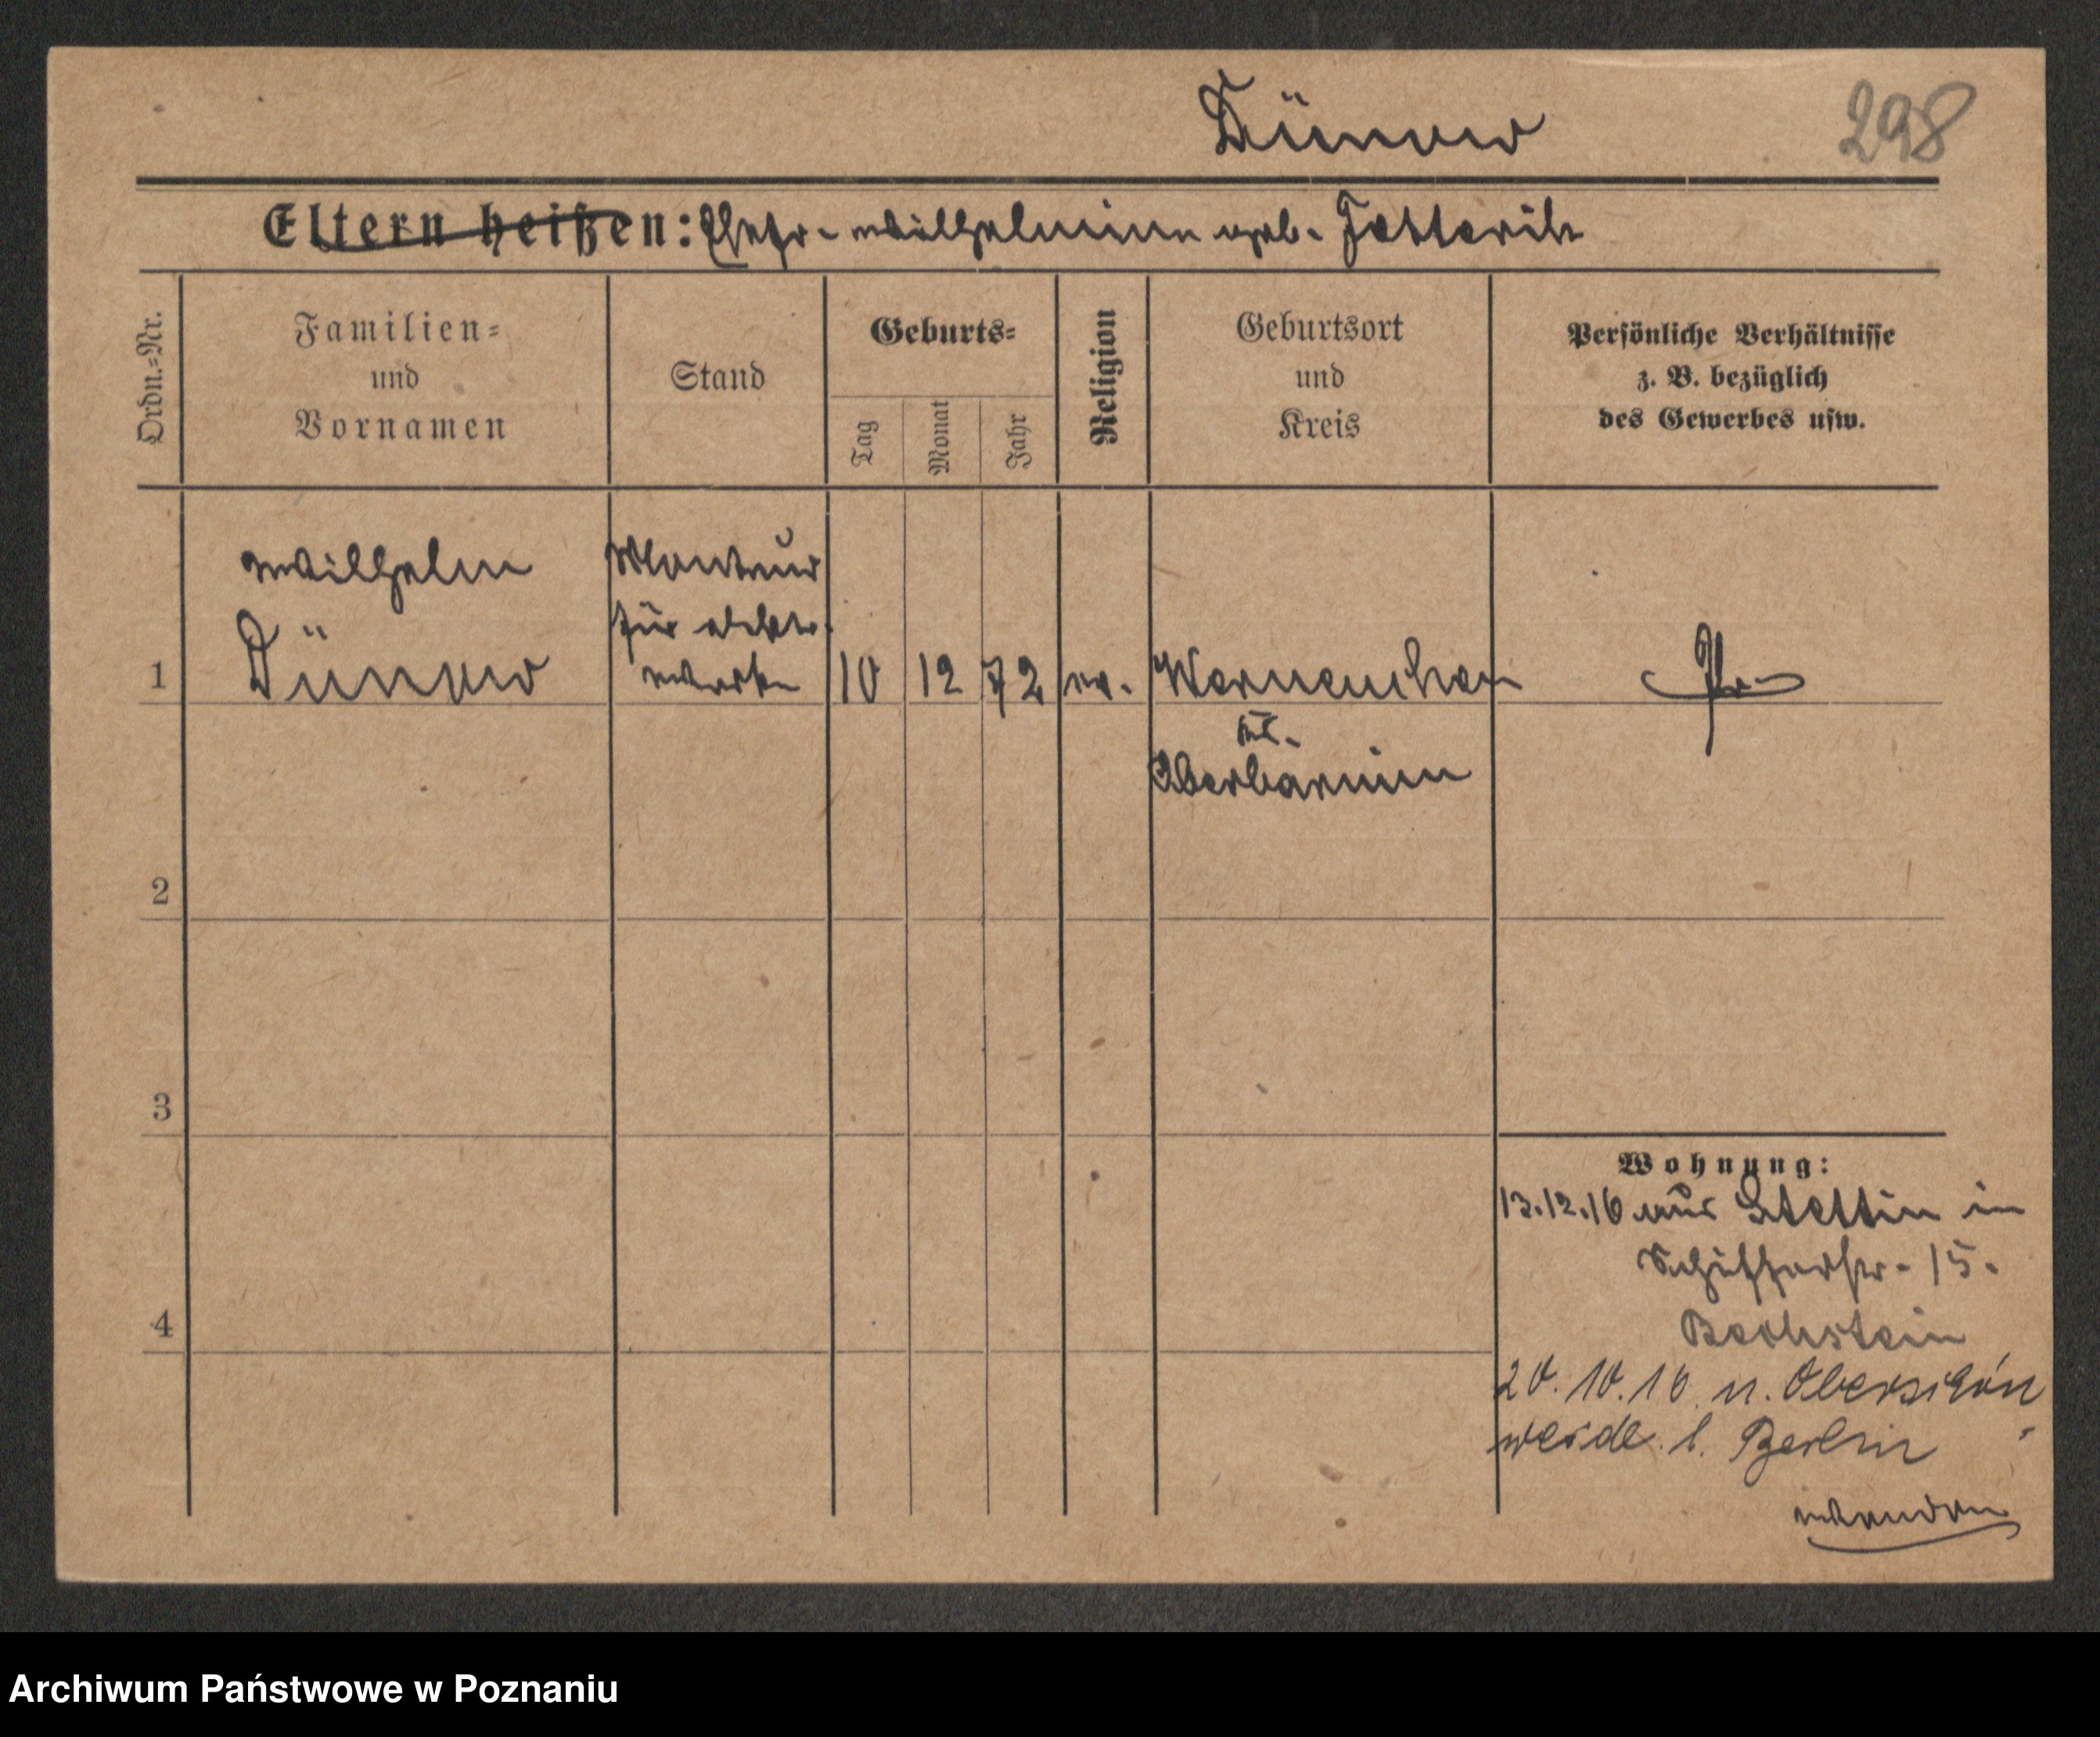 Dünow
298
Eltern heißen: Ehefr. Wilhelmine geb. Fetterik
Ordn.=Nr.
Familien=
und
Vornamen
Stand
Geburts=
Tag
Monat
Jahr
Religion
Geburtsort
und
Kreis
Persönliche Verhältnisse
z. B. bezüglich
des Gewerbes usw.
1
Wilhelm
Dünow
Monteur
für elektr.
werke
10
12
72
ev.
Werneuchen
Kr.
Oberbarnim
Pr.
2
3
4
Wohnung:
13.12.16 aus Stettin in
15.
Bechstein
20.10.16 n. Oberschön
weide b. Berlin